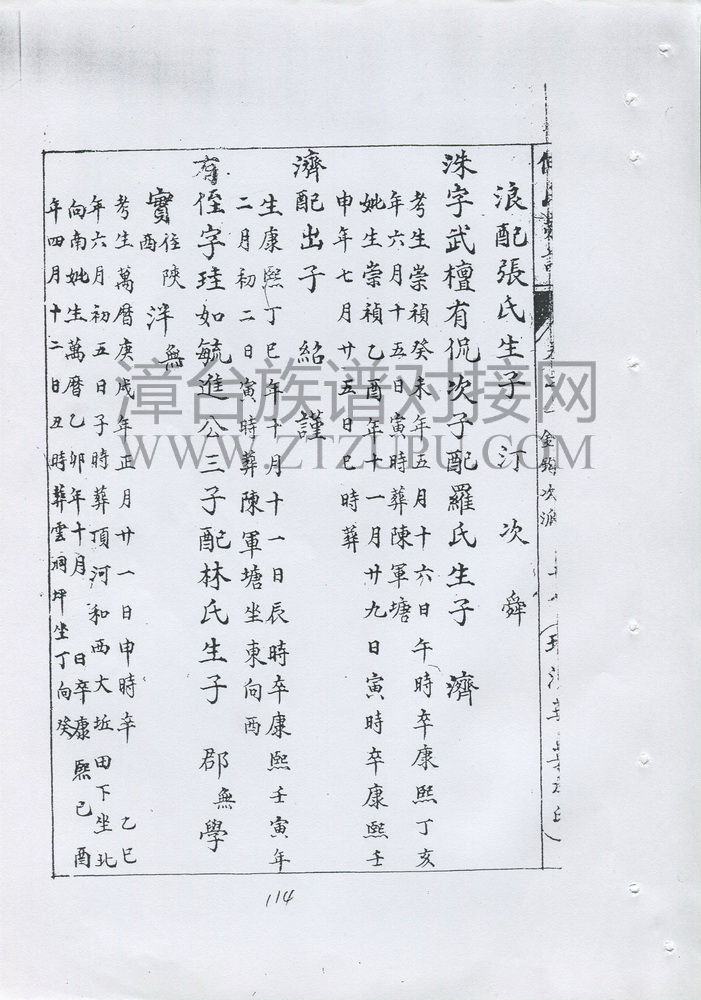 浪配張氏生子 汀 次 舜
洙字武檀有侃次子配羅氏生子 濟
考生崇禎癸未年五月十六日午時卒康熙丁亥
年六月十五日寅時葬陳軍塘
妣生崇禎乙酉年十一月廿九日寅時卒康熙壬
申年七月廿五日巳時葬
濟配出子 紹 謹
生康熙丁巳年十月十一日辰時卒康熙壬寅年
二月初二日寅時葬陳軍塘坐東向西
有侄字珪如毓進公三子配林氏生子 郡無 學
寳住陝西 泮無
考生萬曆庚戌年正月廿一日申時卒 乙巳
年六月初五日子時葬頂河和西大坵田下坐北
向南妣生萬曆乙卯年十月 日卒康熙己酉
年四月十二日丑時葬雲祠坪坐丁向癸
金 次派
114
漳台族谱对接网
WWW.ZTZUPU.COM